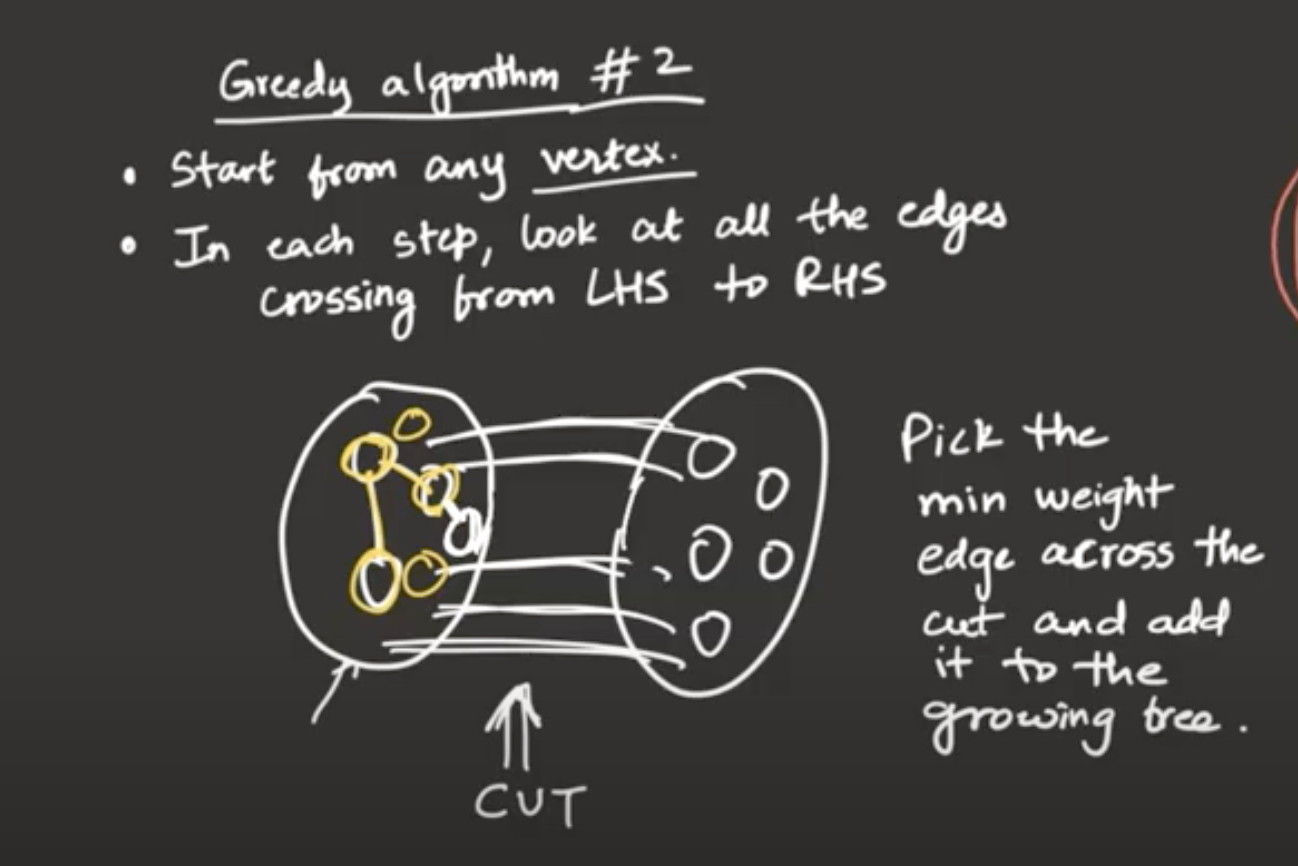 Greedy algorithm #2
• Start from any vertex.
• In each step, look at all the edges
crossing from LHS to RHS
Pick the
min weight
edge across the
cut and add
it to the
growing tree.
CUT